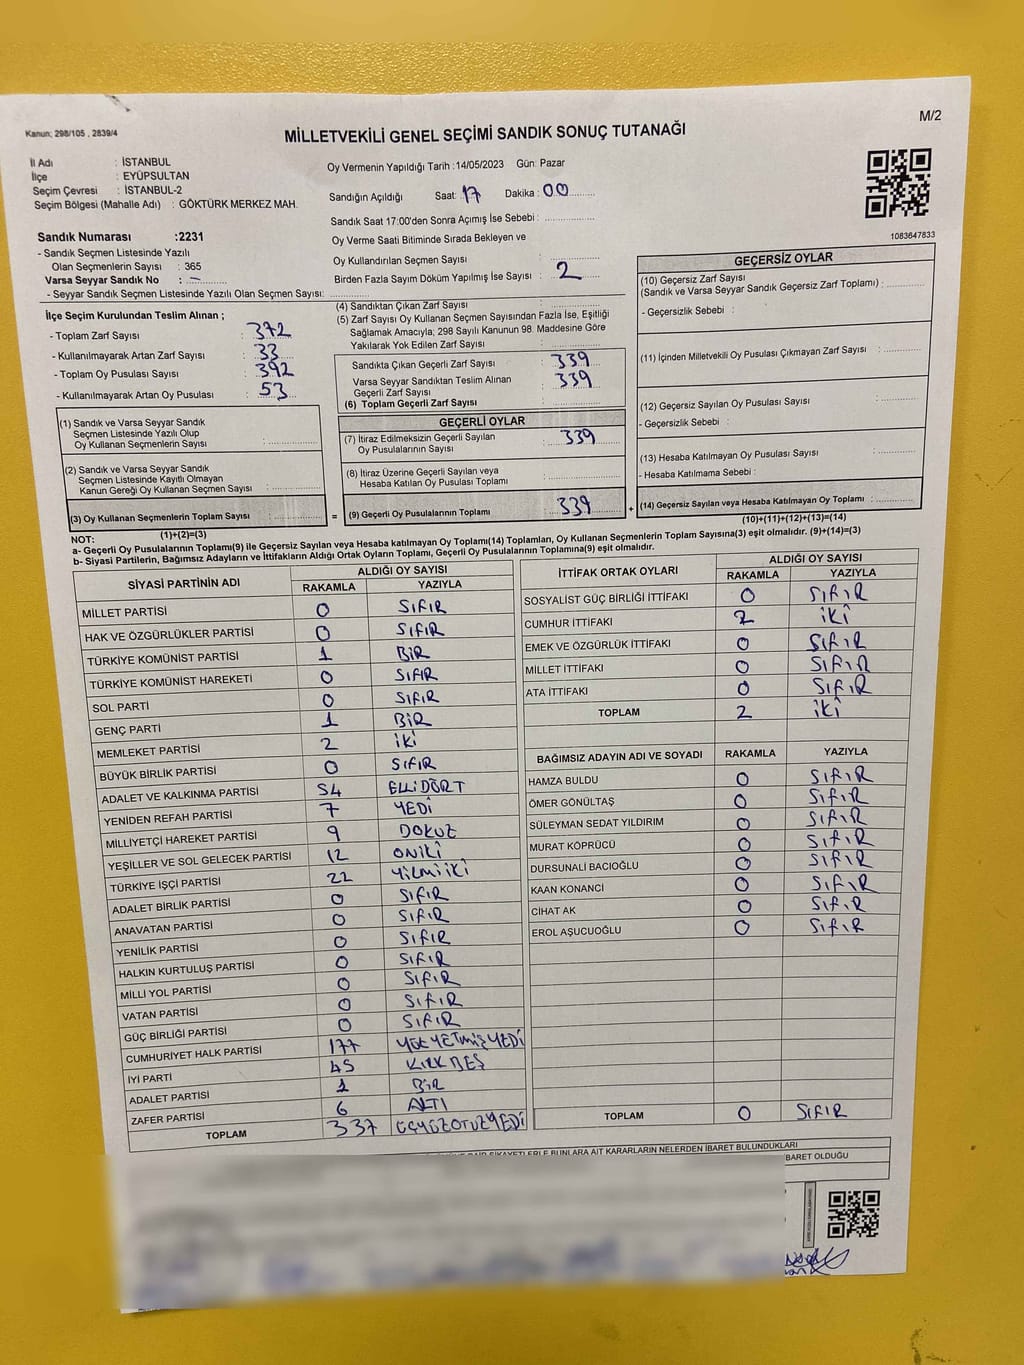 M/2
Kanun; 298/105 , 2839/4
MİLLETVEKİLİ GENEL SEÇİMİ SANDIK SONUÇ TUTANAĞI
İl Adı : İSTANBUL
İlçe : EYÜPSULTAN
Seçim Çevresi : İSTANBUL-2
Seçim Bölgesi (Mahalle Adı) : GÖKTÜRK MERKEZ MAH.
Sandık Numarası :2231
- Sandık Seçmen Listesinde Yazılı
Olan Seçmenlerin Sayısı : 365
Varsa Seyyar Sandık No : -
- Seyyar Sandık Seçmen Listesinde Yazılı Olan Seçmen Sayısı:
Oy Vermenin Yapıldığı Tarih :14/05/2023 Gün: Pazar
Sandığın Açıldığı Saat: 17 Dakika : 00
Sandık Saat 17:00'den Sonra Açımış İse Sebebi :
Oy Verme Saati Bitiminde Sırada Bekleyen ve
Oy Kullandırılan Seçmen Sayısı :
Birden Fazla Sayım Döküm Yapılmış İse Sayısı : 2
1083647833
İlçe Seçim Kurulundan Teslim Alınan ;
- Toplam Zarf Sayısı : 372
- Kullanılmayarak Artan Zarf Sayısı : 33
- Toplam Oy Pusulası Sayısı : 392
- Kullanılmayarak Artan Oy Pusulası : 53
(1) Sandık ve Varsa Seyyar Sandık
Seçmen Listesinde Yazılı Olup
Oy Kullanan Seçmenlerin Sayısı :
(2) Sandık ve Varsa Seyyar Sandık
Seçmen Listesinde Kayıtlı Olmayan
Kanun Gereği Oy Kullanan Seçmen Sayısı :
(3) Oy Kullanan Seçmenlerin Toplam Sayısı
(1)+(2)=(3)
(4) Sandıktan Çıkan Zarf Sayısı :
(5) Zarf Sayısı Oy Kullanan Seçmen Sayısından Fazla İse, Eşitliği
Sağlamak Amacıyla; 298 Sayılı Kanunun 98. Maddesine Göre
Yakılarak Yok Edilen Zarf Sayısı :
Sandıkta Çıkan Geçerli Zarf Sayısı : 339
Varsa Seyyar Sandıktan Teslim Alınan
Geçerli Zarf Sayısı : 339
(6) Toplam Geçerli Zarf Sayısı :
GEÇERLİ OYLAR
(7) İtiraz Edilmeksizin Geçerli Sayılan
Oy Pusulalarının Sayısı : 339
(8) İtiraz Üzerine Geçerli Sayılan veya
Hesaba Katılan Oy Pusulası Toplamı :
= (9) Geçerli Oy Pusulalarının Toplamı : 339 +
GEÇERSİZ OYLAR
(10) Geçersiz Zarf Sayısı
(Sandık ve Varsa Seyyar Sandık Geçersiz Zarf Toplamı) :
- Geçersizlik Sebebi :
(11) İçinden Milletvekili Oy Pusulası Çıkmayan Zarf Sayısı :
(12) Geçersiz Sayılan Oy Pusulası Sayısı :
- Geçersizlik Sebebi :
(13) Hesaba Katılmayan Oy Pusulası Sayısı :
- Hesaba Katılmama Sebebi :
(14) Geçersiz Sayılan veya Hesaba Katılmayan Oy Toplamı :
(10)+(11)+(12)+(13)=(14)
NOT:
a- Geçerli Oy Pusulalarının Toplamı(9) ile Geçersiz Sayılan veya Hesaba katılmayan Oy Toplamı(14) Toplamları, Oy Kullanan Seçmenlerin Toplam Sayısına(3) eşit olmalıdır. (9)+(14)=(3)
b- Siyasi Partilerin, Bağımsız Adayların ve İttifakların Aldığı Ortak Oyların Toplamı, Geçerli Oy Pusulalarının Toplamına(9) eşit olmalıdır.
SİYASİ PARTİNİN ADI ALDIĞI OY SAYISI
RAKAMLA YAZIYLA
MİLLET PARTİSİ 0 SIFIR
HAK VE ÖZGÜRLÜKLER PARTİSİ 0 SIFIR
TÜRKİYE KOMÜNİST PARTİSİ 1 BİR
TÜRKİYE KOMÜNİST HAREKETİ 0 SIFIR
SOL PARTİ 0 SIFIR
GENÇ PARTİ 1 BİR
MEMLEKET PARTİSİ 2 İKİ
BÜYÜK BİRLİK PARTİSİ 0 SIFIR
ADALET VE KALKINMA PARTİSİ 54 ELLİDÖRT
YENİDEN REFAH PARTİSİ 7 YEDİ
MİLLİYETÇİ HAREKET PARTİSİ 9 DOKUZ
YEŞİLLER VE SOL GELECEK PARTİSİ 12 ONİKİ
TÜRKİYE İŞÇİ PARTİSİ 22 YİRMİİKİ
ADALET BİRLİK PARTİSİ 0 SIFIR
ANAVATAN PARTİSİ 0 SIFIR
YENİLİK PARTİSİ 0 SIFIR
HALKIN KURTULUŞ PARTİSİ 0 SIFIR
MİLLİ YOL PARTİSİ 0 SIFIR
VATAN PARTİSİ 0 SIFIR
GÜÇ BİRLİĞİ PARTİSİ 0 SIFIR
CUMHURİYET HALK PARTİSİ 177 YÜZYETMİŞYEDİ
İYİ PARTİ 45 KIRKBEŞ
ADALET PARTİSİ 1 BİR
ZAFER PARTİSİ 6 ALTI
TOPLAM 337 ÜÇYÜZOTUZYEDİ
İTTİFAK ORTAK OYLARI ALDIĞI OY SAYISI
RAKAMLA YAZIYLA
SOSYALİST GÜÇ BİRLİĞİ İTTİFAKI 0 SIFIR
CUMHUR İTTİFAKI 2 İKİ
EMEK VE ÖZGÜRLÜK İTTİFAKI 0 SIFIR
MİLLET İTTİFAKI 0 SIFIR
ATA İTTİFAKI 0 SIFIR
TOPLAM 2 İKİ
BAĞIMSIZ ADAYIN ADI VE SOYADI RAKAMLA YAZIYLA
HAMZA BULDU 0 SIFIR
ÖMER GÖNÜLTAŞ 0 SIFIR
SÜLEYMAN SEDAT YILDIRIM 0 SIFIR
MURAT KÖPRÜCÜ 0 SIFIR
DURSUNALİ BACIOĞLU 0 SIFIR
KAAN KONANCİ 0 SIFIR
CİHAT AK 0 SIFIR
EROL AŞUCUOĞLU 0 SIFIR
TOPLAM 0 SIFIR
ŞİKAYETLERLE BUNLARA AİT KARARLARIN NELERDEN İBARET BULUNDUKLARI
BARET OLDUĞU